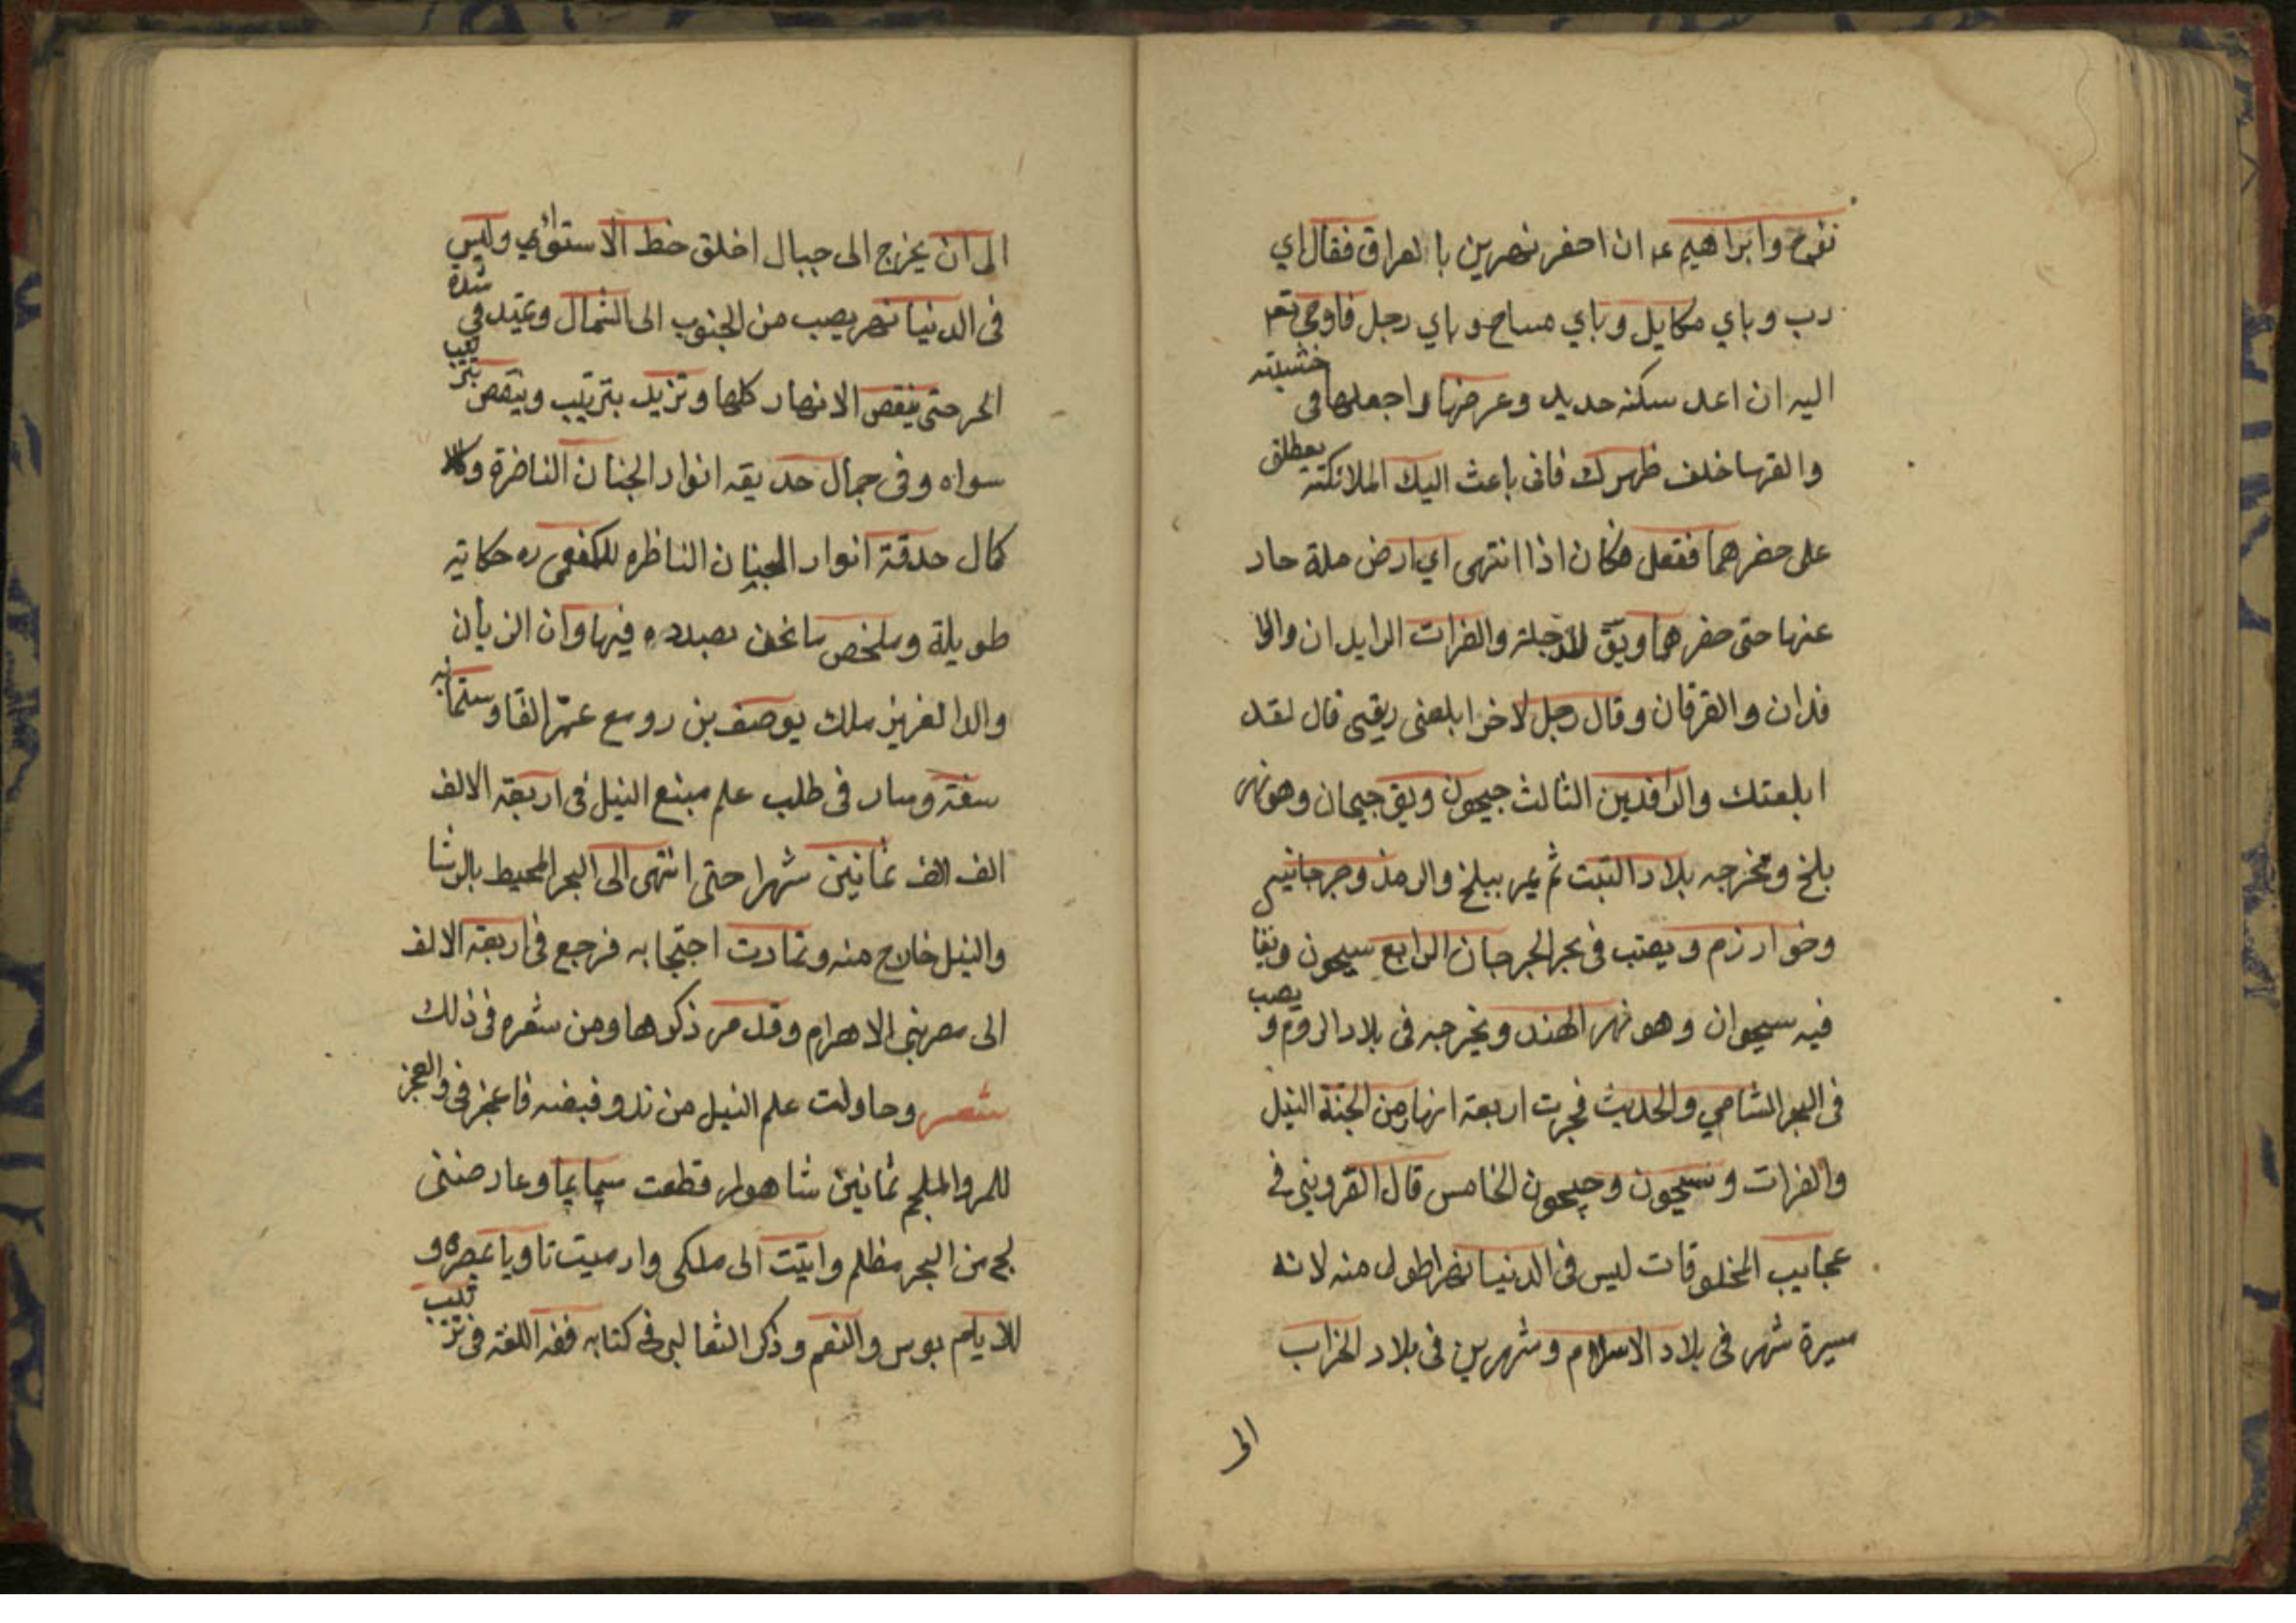 نفوح وابراهيم عم ان احفر نهرين بالعراق فقال اي
رب وباي مكايل وباي مساح وباي رجل فاوحى تعم
اليه ان اعد سكنه حديد وعرضها واجعلها في خشبته
والقها خلف ظهرك فانى باعث اليك الملائكته يعطلق
على حفرهما ففعل فكان اذا انتهى اي ارض ملة حاد
عنها حتى حفرهما ويق للدجلة والفرات الرايدان والوا
فدان والفرقان وقال رجل لاخر ابلعنى ريقى قال لقد
ابلعتك والرافدين الثالث جيحون ويق جيحان وهو نهر
بلخ ومخرجه بلاد التبت ثم يمر ببلخ والرمذ وجرجانيه
وخوارزم ويصب فى بحر الجرجان الرابع سيحون ويقا
فيه سيحوان وهو نهر الهند ويخرجه فى بلاد الروم و يصب
فى البحر الشامي والحديث فجرت اربعة انهار من الجنة النيل
والفرات وسيحون وجيحون الخامس قال القزويني في
عجايب المخلوقات ليس فى الدنيا نهر اطول منه لانه
مسيرة شهر فى بلاد الاسلام وشهرين فى بلاد الخراب
الى
الى ان يخرج الى جبال اخلق خط الاستوائي وليس
فى الدنيا نهر يصب من الجنوب الى الشمال ويمتد في شدة
الحر حتى ينقص الانهار كلها وتزيد بترتيب وينقص بترتيب
سواه وفى جمال حديقه انوار الجنان الناضرة وكلا
كمال حدقة انوار الجنان الناظره للكفعمى ره حكاتيه
طويلة وملخص ما نحن بصدده فيها وان الريان
والد العزيز ملك يوصف بن رومع عمّر الفا وستمائه
سنة وسار فى طلب علم منبع النيل فى اربعة الالف
الف الف ثمانين شهرا حتى انتهى الى البحر المحيط بالدنيا
والنيل خارج منه وتمادت احتجابه فرجع فى اربعة الالف
الى مصر بنى الاهرام وقد مر ذكرها ومن شعره فى ذلك
شعر وحاولت علم النيل من بدو فيضه فاعجزنى والعجز
للمرو الملجم ثمانين شاهوار قطعت سپايما وعارضنى
لج من البحر مظلم وابتت الى ملكى وارسيت ثاويا بمصر و
للايام بوس والنعم وذكر الثعالبى فى كتابه فقه اللغة فى ترتيب